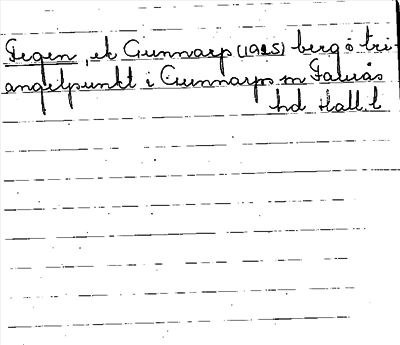 Gegen, ek Gunnarp (1925) berg o tri-
angelpunkt i Gunnarps sn Faurås
hd Hall. l